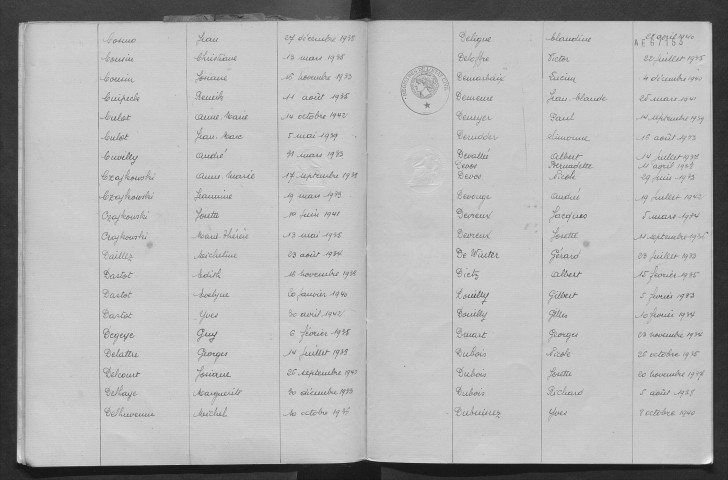 Jean 27 décembre 1938
Cousin Christiane 13 mars 1935
Cousin Josiane 15 novembre 1933
11 août 1935
Culot Anne Marie 14 octobre 1942
Culot Jean-Marc 5 mai 1939
André 31 mars 1933
Czajkowski Anne-Marie 17 septembre 1938
Czajkowski Jeannine 19 mars 1933
Czajkowski Josette 10 juin 1941
Czajkowski Marie-Thérèse 13 mai 1935
Dailliez Micheline 23 août 1934
Dartot Edith 16 novembre 1938
Dartot Evelyne 20 janvier 1940
Dartot Yves 30 avril 1942
Degeye Guy 6 février 1938
Delattre Georges 14 juillet 1938
Delcourt Josiane 25 septembre 1941
Delhaye Marguerite 30 décembre 1933
Michel 10 octobre 1935
Deligne Claudine 28 avril 1940
Deloffre Victor 20 juillet 1935
Lucien 4 décembre 1941
Jean-Claude 25 mars 1941
Denoyer Paul 14 septembre 1939
Simonne 16 août 1933
Albert 14 juillet 1938
Devos Bernadette 11 avril 1938
Devos Nicole 29 juin 1933
Devouge André 19 juillet 1942
Devreux Jacques 5 mars 1934
Devreux Josette 11 septembre 1935
De Winter Gérard 23 juillet 1933
Dietz Albert 15 février 1935
Douilly Gilbert 5 février 1933
Douilly Gilles 10 février 1934
Georges 23 novembre 1934
Dubois Nicole 25 octobre 1935
Dubois Josette 20 novembre 1937
Dubois Richard 5 août 1938
Yves 8 octobre 1940